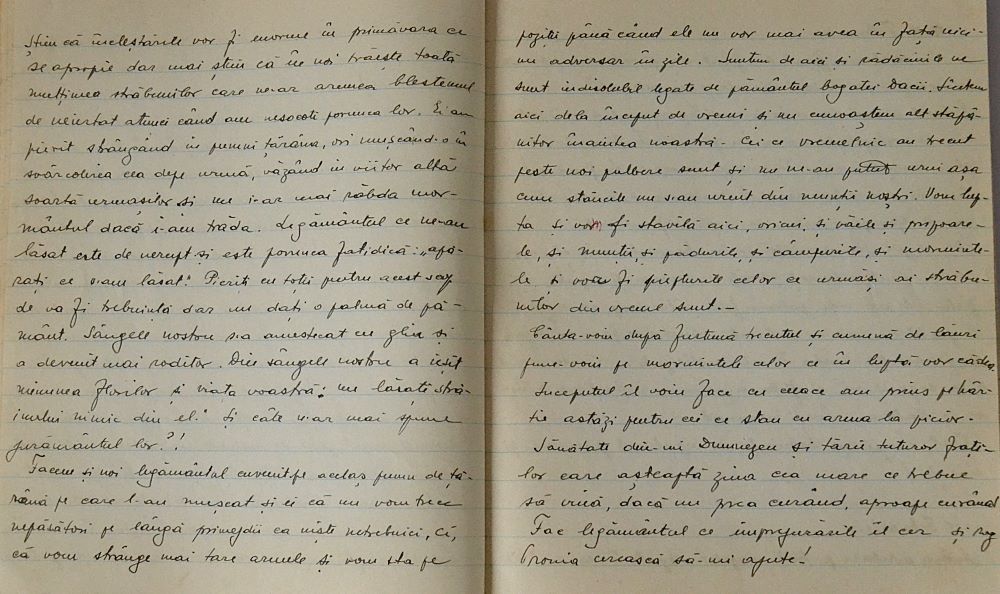 Știm că încleștările vor fi enorme în primăvara ce
se apropie dar mai știm că în noi trăește toată
mulțimea străbunilor care ne-ar arunca blestemul
de neiertat atunci când am nesocoti porunca lor. Ei au
pierit strângând în pumni țărâna, ori mușcând-o în
svârcolirea cea depe urmă, văzând în viitor altă
soartă urmașilor și nu i-ar mai răbda mor-
mântul dacă i-am trăda. Legământul ce ne-au
lăsat este de nerupt și este porunca fatidică: „apă-
rați ce v-am lăsat". Pieriți cu toții pentru acest scop
de va fi trebuință dar nu dați o palmă de pă-
mânt. Sângele nostru s-a amestecat cu glia și
a devenit mai roditor. Din sângele nostru a ieșit
minunea florilor și viața voastră: nu lăsați stră-
inului nimic din el." Și câte n-ar mai spune
jurământul lor?!
Facem și noi legământul cuvenit pe acelaș pumn de ță-
rână pe care l-au mușcat și ei că nu vom trece
nepăsători pe lângă primejdii ca niște netrebnici, ci,
că vom strânge mai tare armele și vom sta pe
poziții până când ele nu vor mai avea în față nici-
un adversar în zile. Suntem de aici și rădăcinile ne
sunt indisolubil legate de pământul bogatei Dacii. Suntem
aici dela început de vremi și nu cunoaștem alt stăpâ-
nitor înaintea noastră. Cei ce vremelnic au trecut
peste noi pulbere sunt și nu ne-au putut urni așa
cum stâncile nu s-au urnit din munții noștri. Vom lup-
ta și vom fi stavilă aici, oricui, și văile și ponoare-
le, și munții, și pădurile, și câmpurile, și morminte-
le și vom fi sfetnicii celor ce urmași ai străbu-
nilor din vremi sunt.-
Cânta-vom după furtună trecutul și cunună de lauri
pune-vom pe mormintele celor ce în luptă vor cădea.
Începutul îl vom face cu ceeace am prins pe hâr-
tie astăzi pentru cei ce stau cu arma la picior.
Sănătate dă-mi Dumnezeu și tărie tuturor frați-
lor care așteaptă ziua cea mare ce trebue
să vină, dacă nu prea curând, aproape curând.
Fac legământul ce împrejurările îl cer și rog
Pronia cerească să-mi ajute!